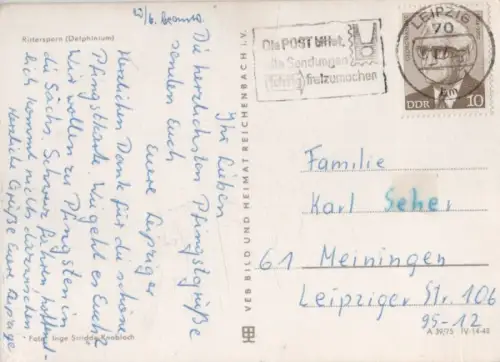 Rittersporn (Delphinium)
Ihr Lieben
Die herzlichsten Pfingstgrüße
senden Euch
Eure Leipziger
Herzlichen Dank für die schöne
Pfingstkarte. Wie geht es Euch?
Wir wollen zu Pfingsten in
die Sächs. Schweiz fahren, hoffent-
lich kommt nichts dazwischen
Herzliche Grüße Eure Leipziger
Foto: Inge Striddo-Knobloch
VEB BILD UND HEIMAT REICHENBACH i. V.
Die POST bittet,
die Sendungen
richtig freizumachen
LEIPZIG
70
DDR 10
Familie
Karl Seher
61 Meiningen
Leipziger Str. 106
99-12
A 39/75 IV-14-48